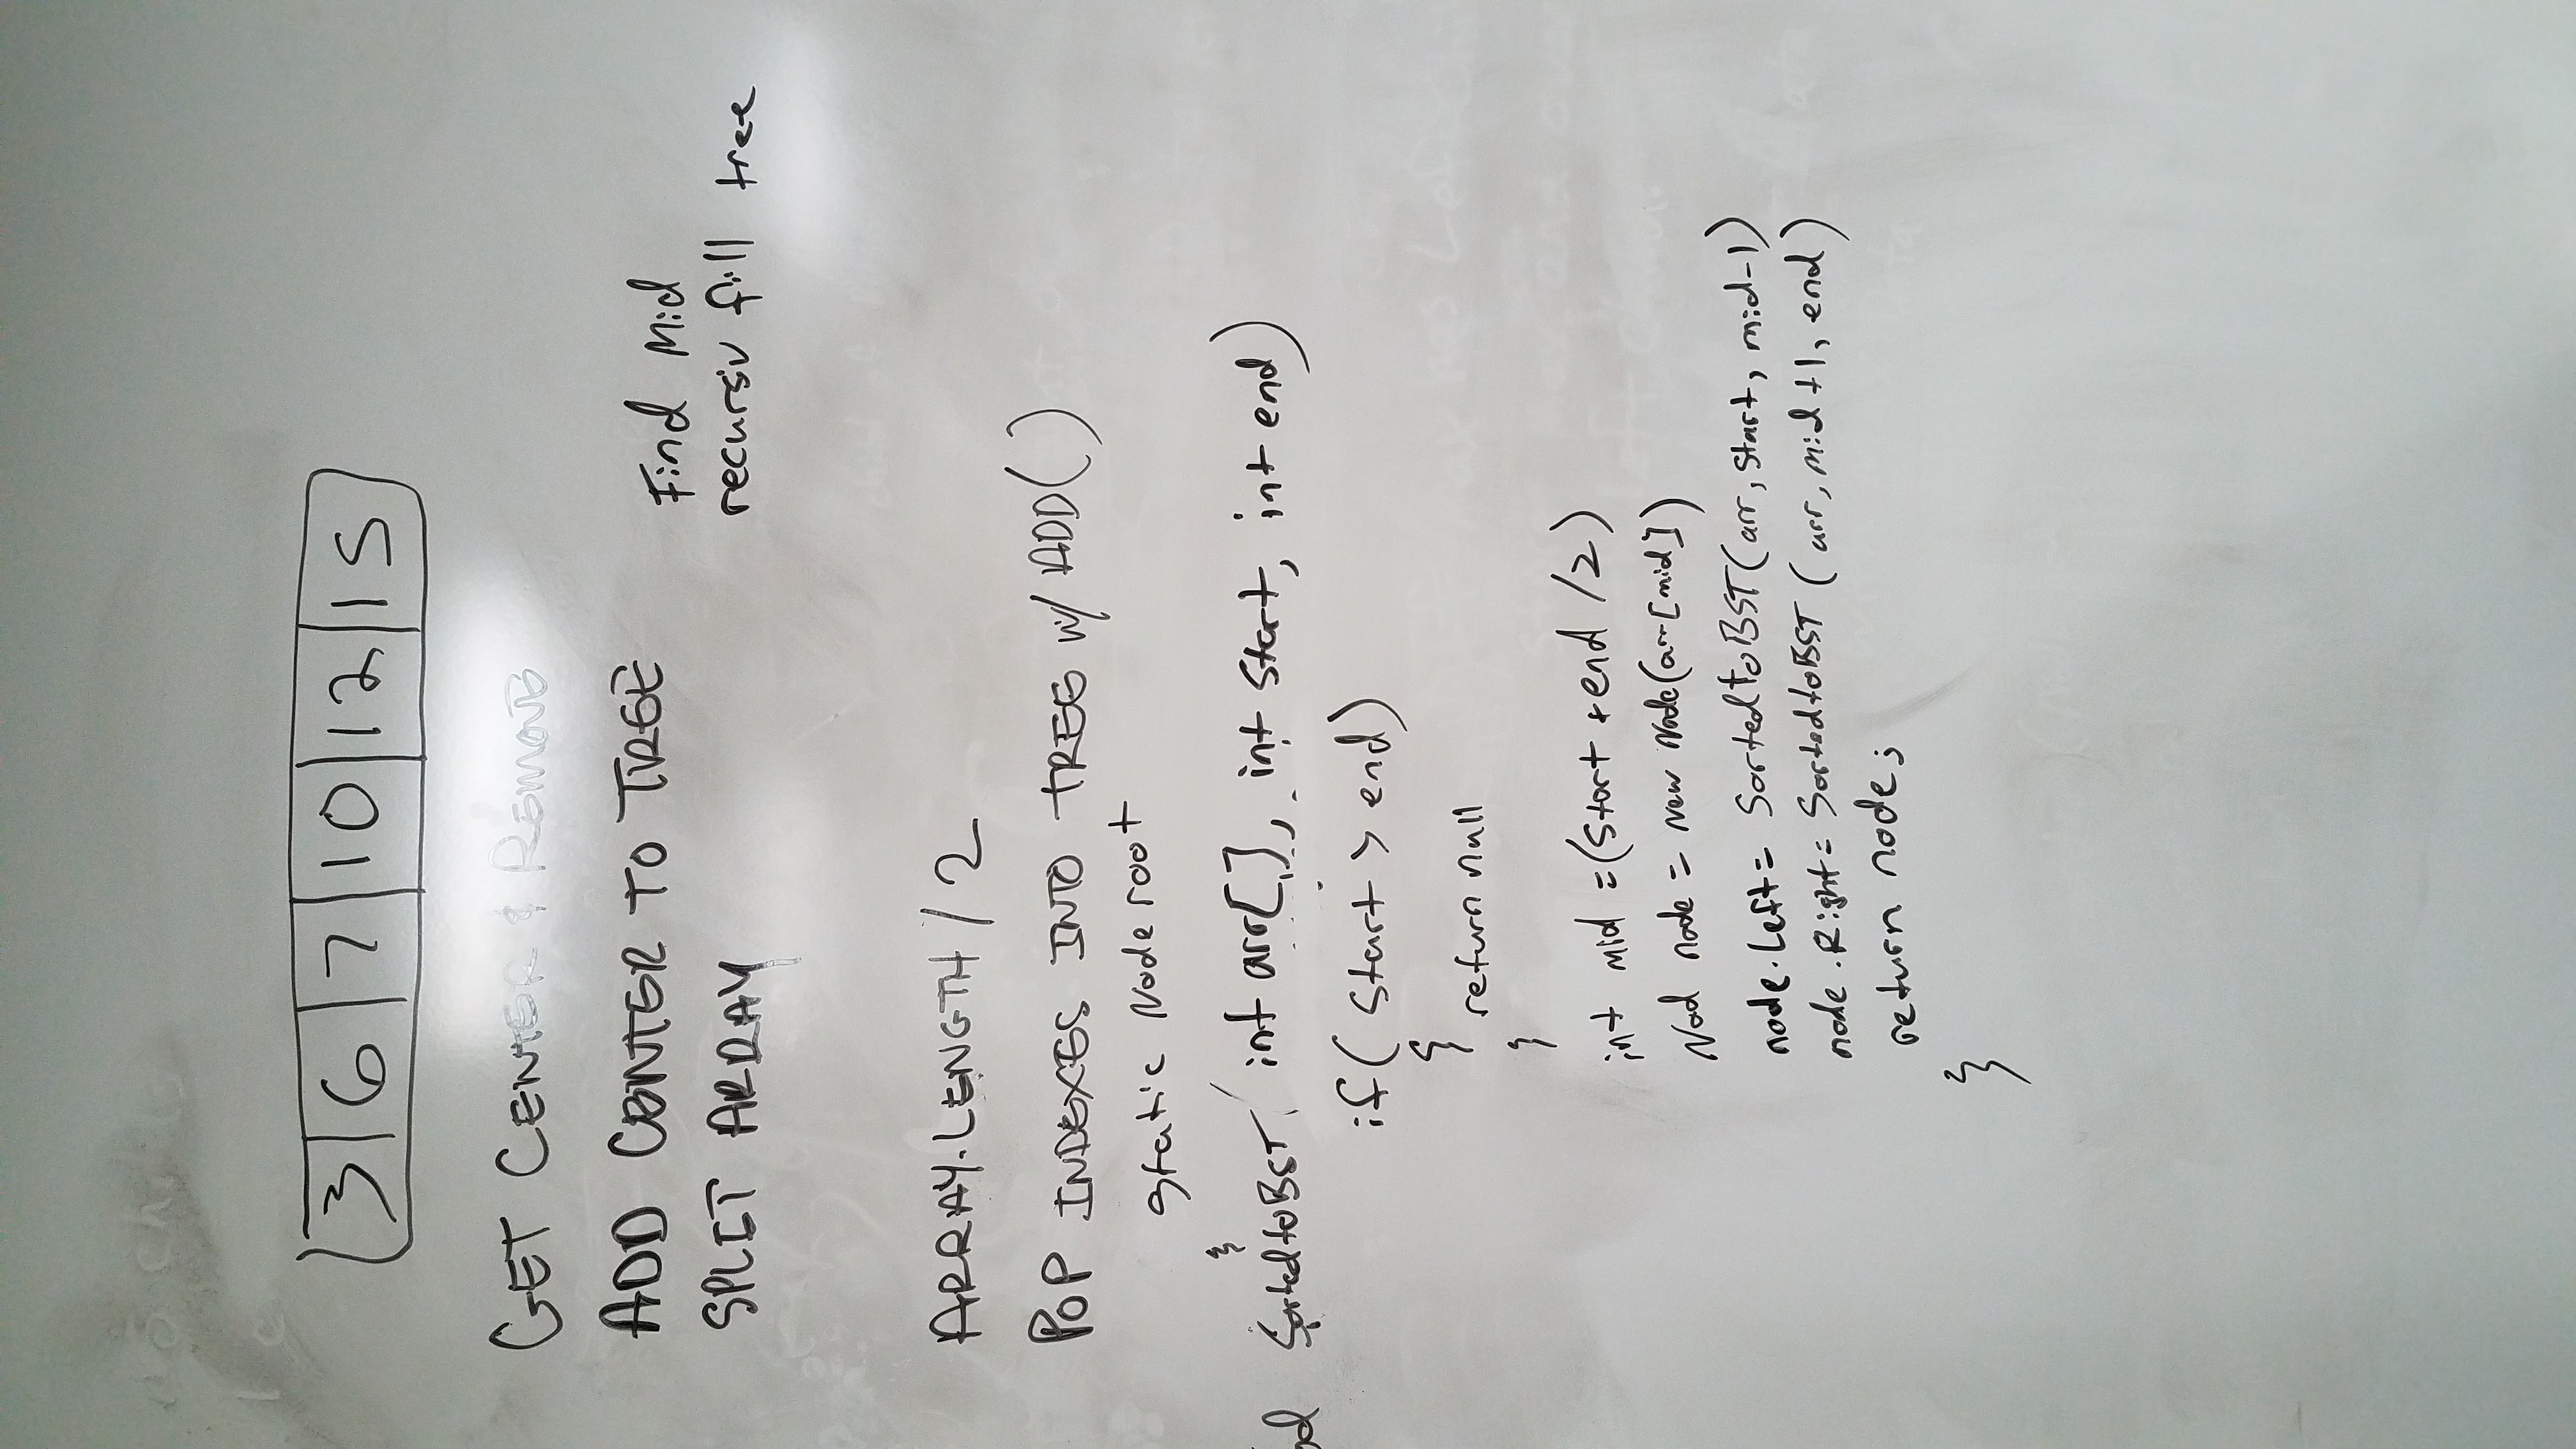 3 6 7 10 12 15
GET CENTER & REMOVE
ADD CENTER TO TREE
SPLIT ARRAY
Find Mid
recursiv fill tree
ARRAY.LENGTH / 2
POP INDEXES INTO TREE W/ ADD()
static Node root
}
od SortedtoBST( int arr[], int start, int end)
if( start > end)
{
return null
}
int mid =(start + end /2)
Nod node = new Node(arr[mid])
node.Left= SortedtoBST(arr, start, mid-1)
node.Right= SortedtoBST (arr, mid+1, end)
return node;
}